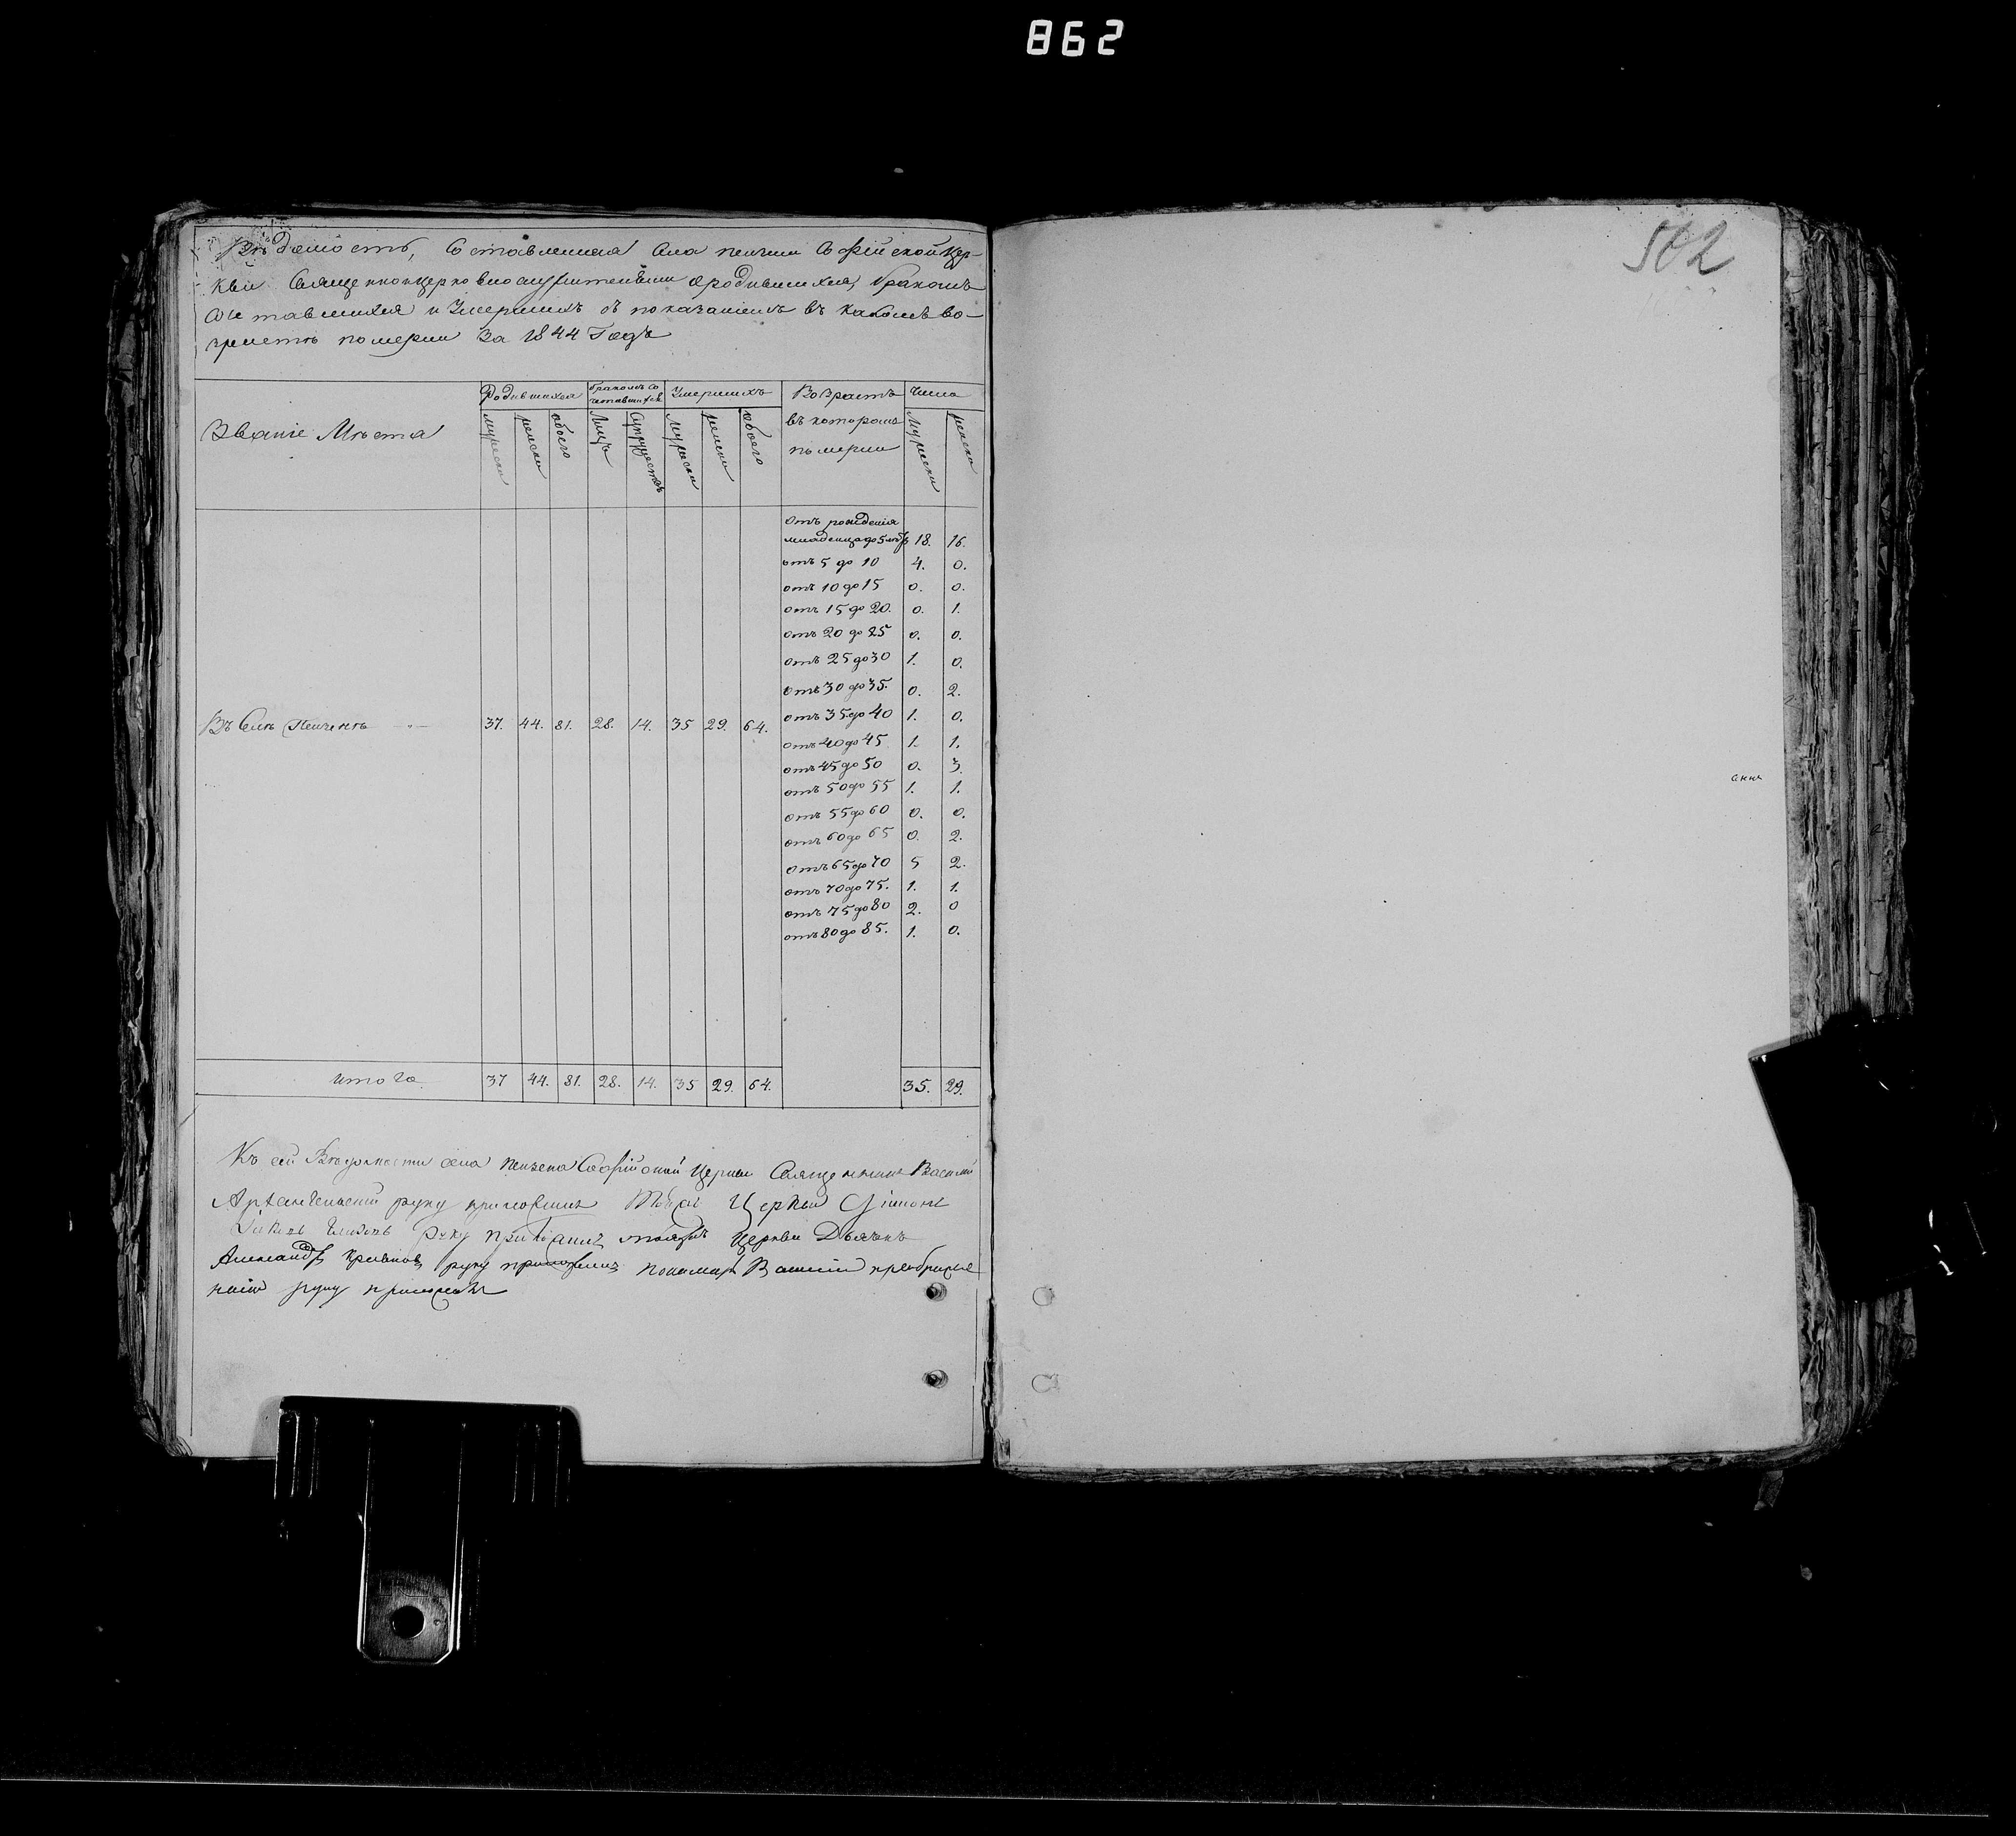 862
502
Вѣдомость, Составленная Села пензина Софiйской Цер-
кви Священноцерковнослужительми ородившихся, бракомъ
сочетавшихся и Умершихъ съ показанiемъ въ какомъ во-
зрастѣ померли За 1844 Годъ
Званiе Мѣста Родившихся бракомъ со четавшихся Умершихъ Возрастъ въ которомъ померли Число
мужески женски обоего Лицъ Супружествъ мужески женски обоего Мужески женски
отъ рожденiя
младенца до 5 лѣтъ 18. 16.
отъ 5 до 10 4. 0.
отъ 10 до 15 0. 0.
отъ 15 до 20. 0. 1.
отъ 20 до 25 0. 0.
отъ 25 до 30 1. 0.
отъ 30 до 35. 0. 2.
Въ Селѣ 37. 44. 81. 28. 14. 35 29. 64. отъ 35 до 40 1. 0.
отъ 40 до 45 1. 1.
отъ 45 до 50 0. 3.
отъ 50 до 55 1. 1.
отъ 55 до 60 0. 0.
отъ 60 до 65 0. 2.
отъ 65 до 70 5 2.
отъ 70 до 75. 1. 1.
отъ 75 до 80 2. 0
отъ 80 до 85. 1. 0.
итого 37 44. 81. 28. 14. 35 29. 64. 35. 29.
Къ сей Вѣдомости села Софiйской Церкви Священникъ Василiй
Архангельскiй руку приложилъ Тояжъ Церкви
руку приложилъ тояжъ Церкви Дьячекъ
Александръ руку приложилъ пономарь Василiй преображе
нскiй руку приложилъ